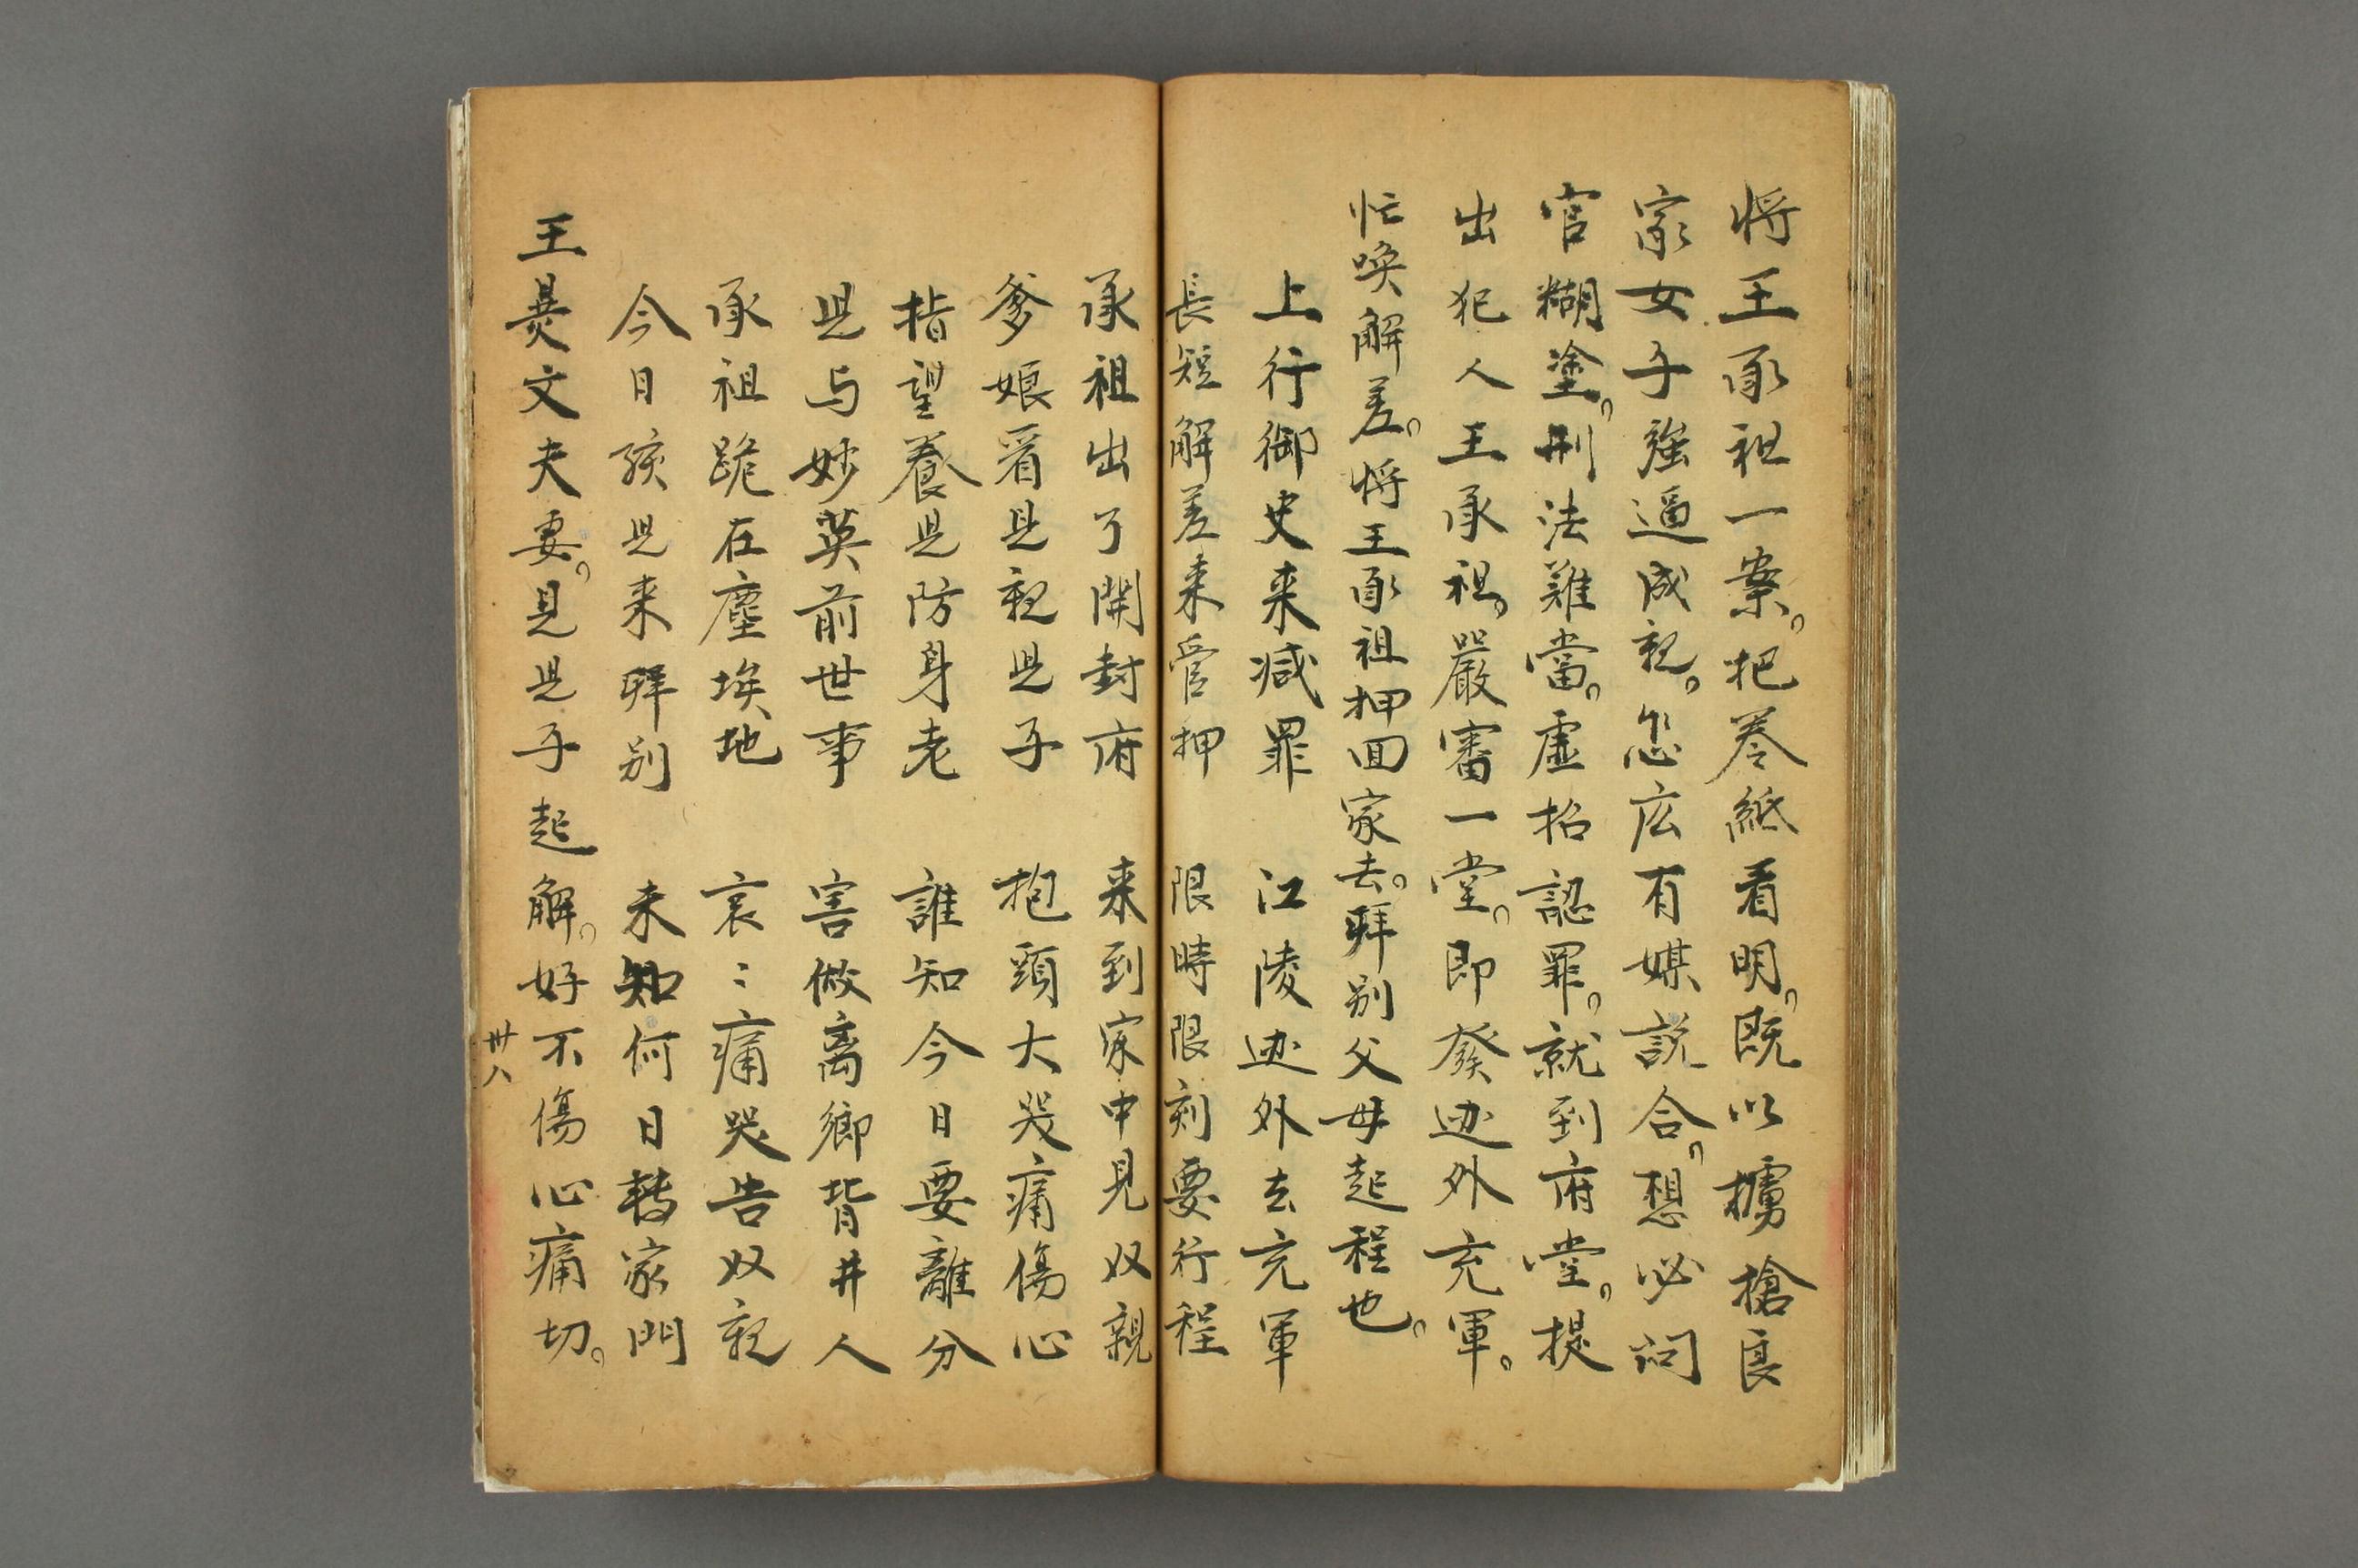 将王承祖一案。把巻紙看明。既以擄搶良
家女子強逼成親。怎広有媒説合。想必问
官糊塗。刑法難當。虛招認罪。就到府堂。提
出犯人王承祖。嚴審一堂。即發边外充軍。
忙喚解差。将王承祖押回家去。拜别父母起程也。
上行御史来减罪　江陵边外去充軍
長短解差来管押　限時限刻要行程
承祖出了開封府　来到家中見双親
爹娘看見親児子　抱頭大哭痛傷心
指望養児防身老　誰知今日要離分
児与妙英前世事　害做离鄉背井人
承祖跪在塵埃地　哀〻痛哭告双親
今日孩児来拜别　未知何日轉家門
王文夫妻。見児子起解。好不傷心痛切。
卅八